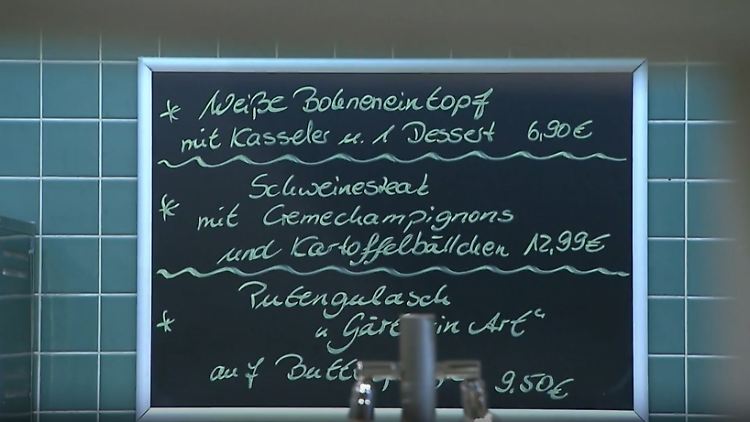 * Weiße Bohneneintopf
mit Kasseler u. 1 Dessert 6,90€
Schweinesteak
* mit Cremechampignons
und Kartoffelbällchen 12,99€
Putengulasch
* Art"
auf 9.50€